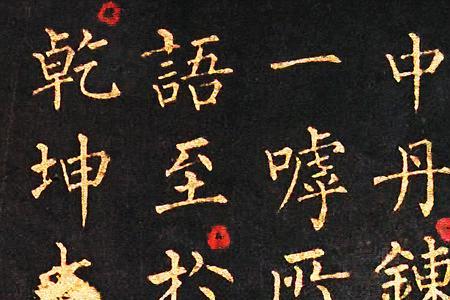 中丹鍊
一嘑所
語至於
乾坤